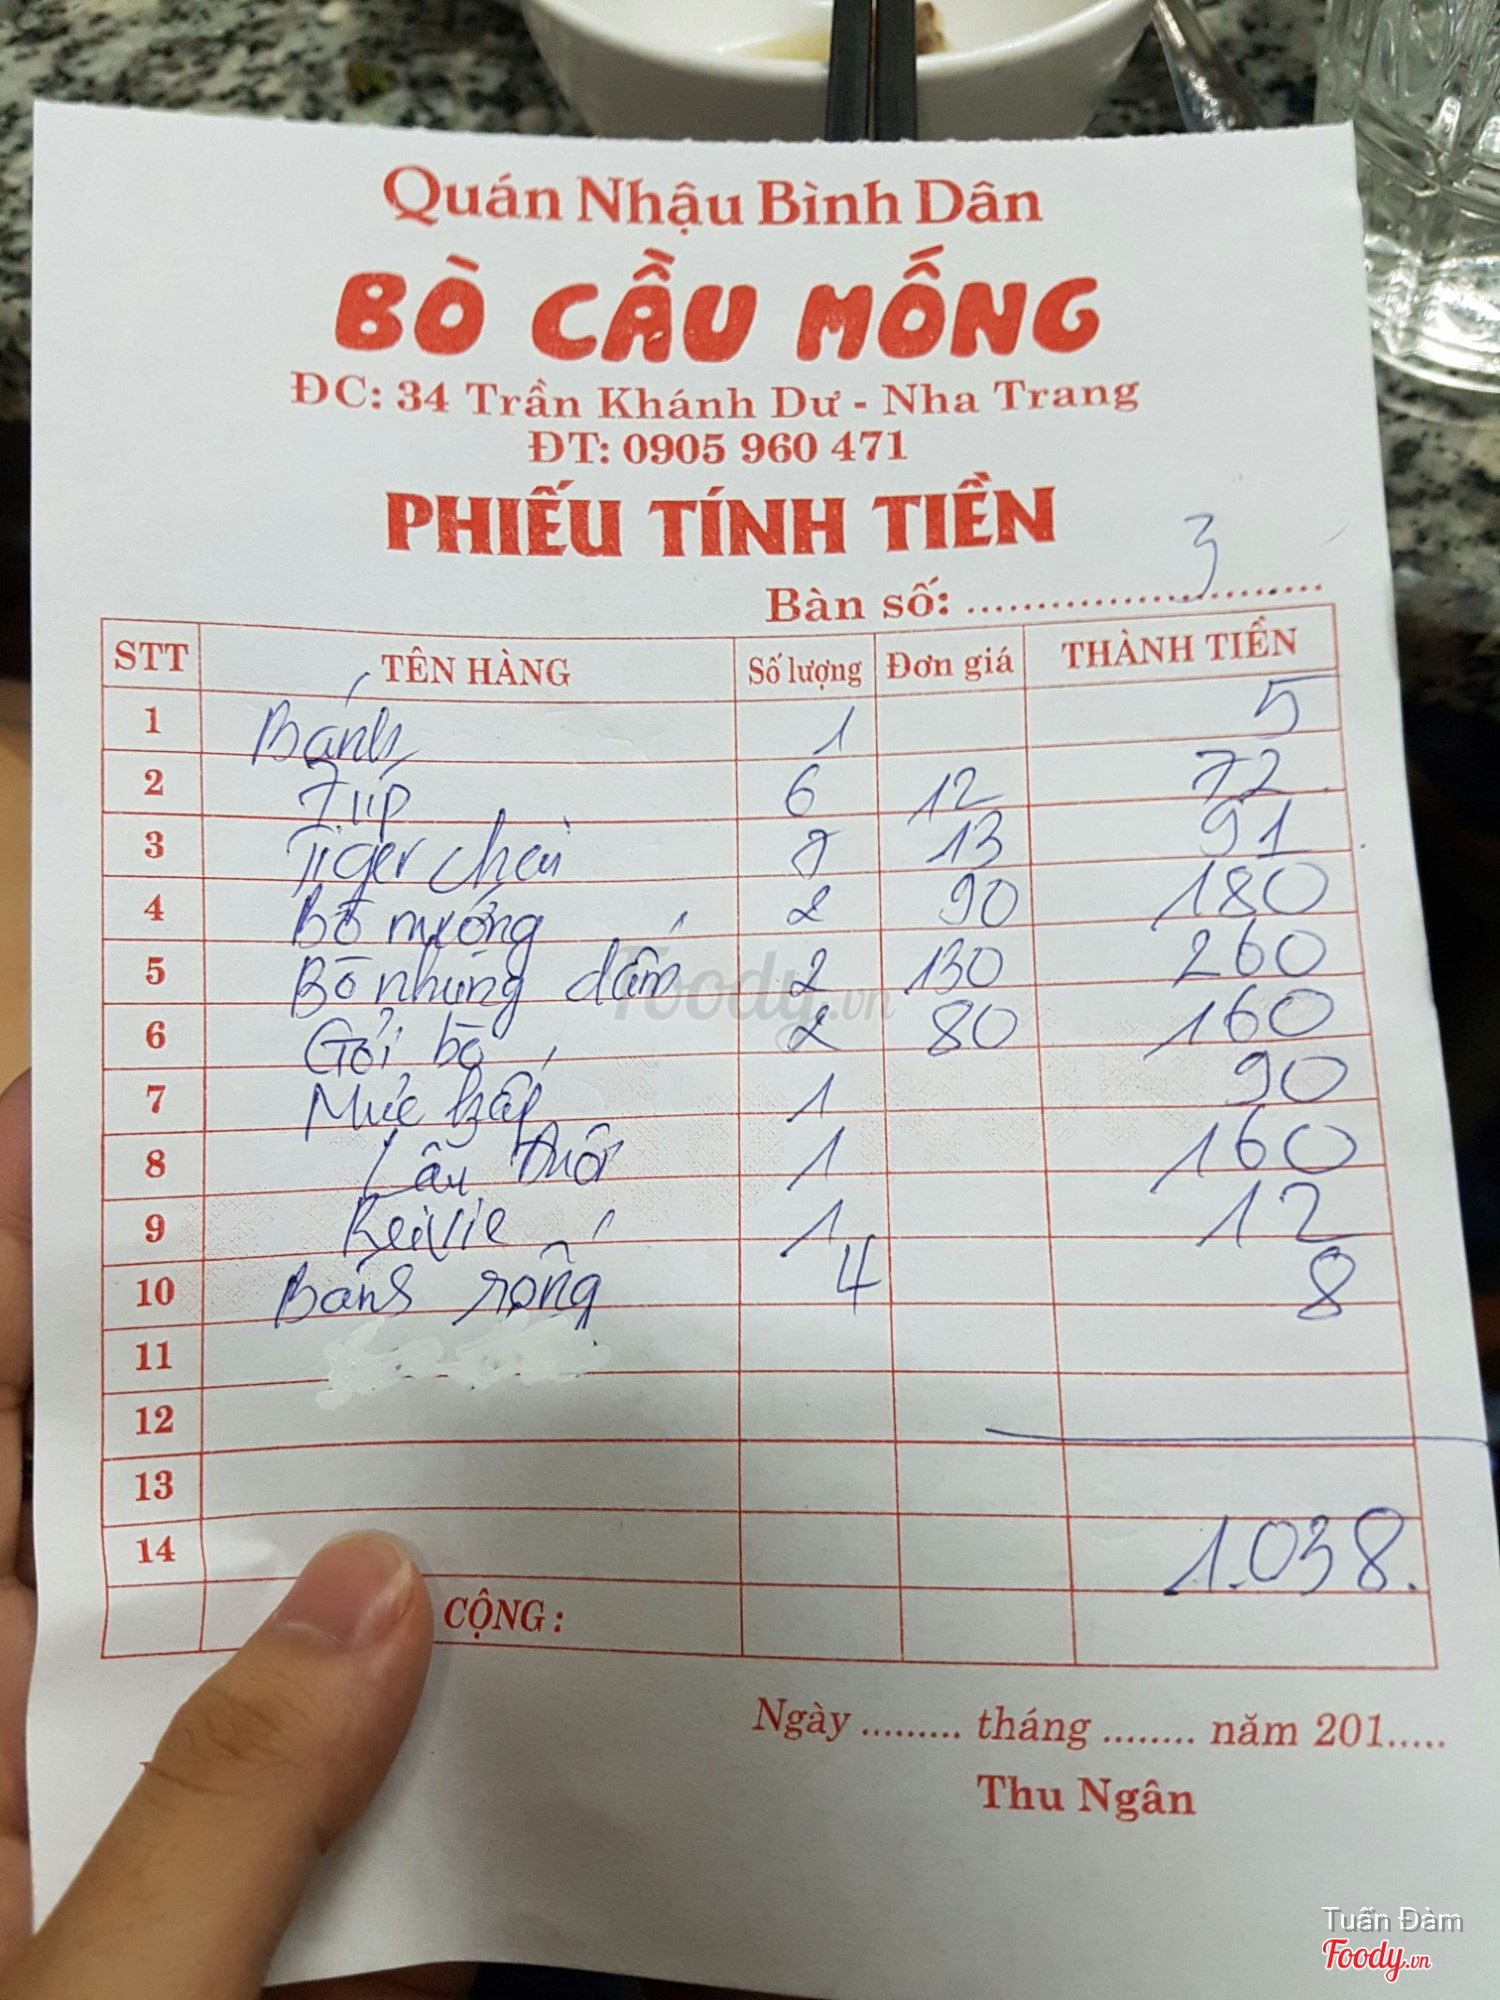 Quán Nhậu Bình Dân
BÒ CẦU MỐNG
ĐC: 34 Trần Khánh Dư - Nha Trang
ĐT: 0905 960 471
PHIẾU TÍNH TIỀN
Bàn số: 3
STT TÊN HÀNG Số lượng Đơn giá THÀNH TIỀN
1 Bánh 1 5
2 7 úp 6 12 72
3 Tiger chai 7 13 91
4 Bò nướng 2 90 180
5 Bò nhúng dấm 2 130 260
6 Gỏi bò 2 80 160
7 Mực hấp 1 90
8 Lẩu 1 160
9 1 12
10 Bánh 4 8
11
12
13
14 1.038.
CỘNG:
Ngày ......... tháng ........ năm 201.....
Thu Ngân
Foody.vn
Tuấn Đàm
Foody.vn